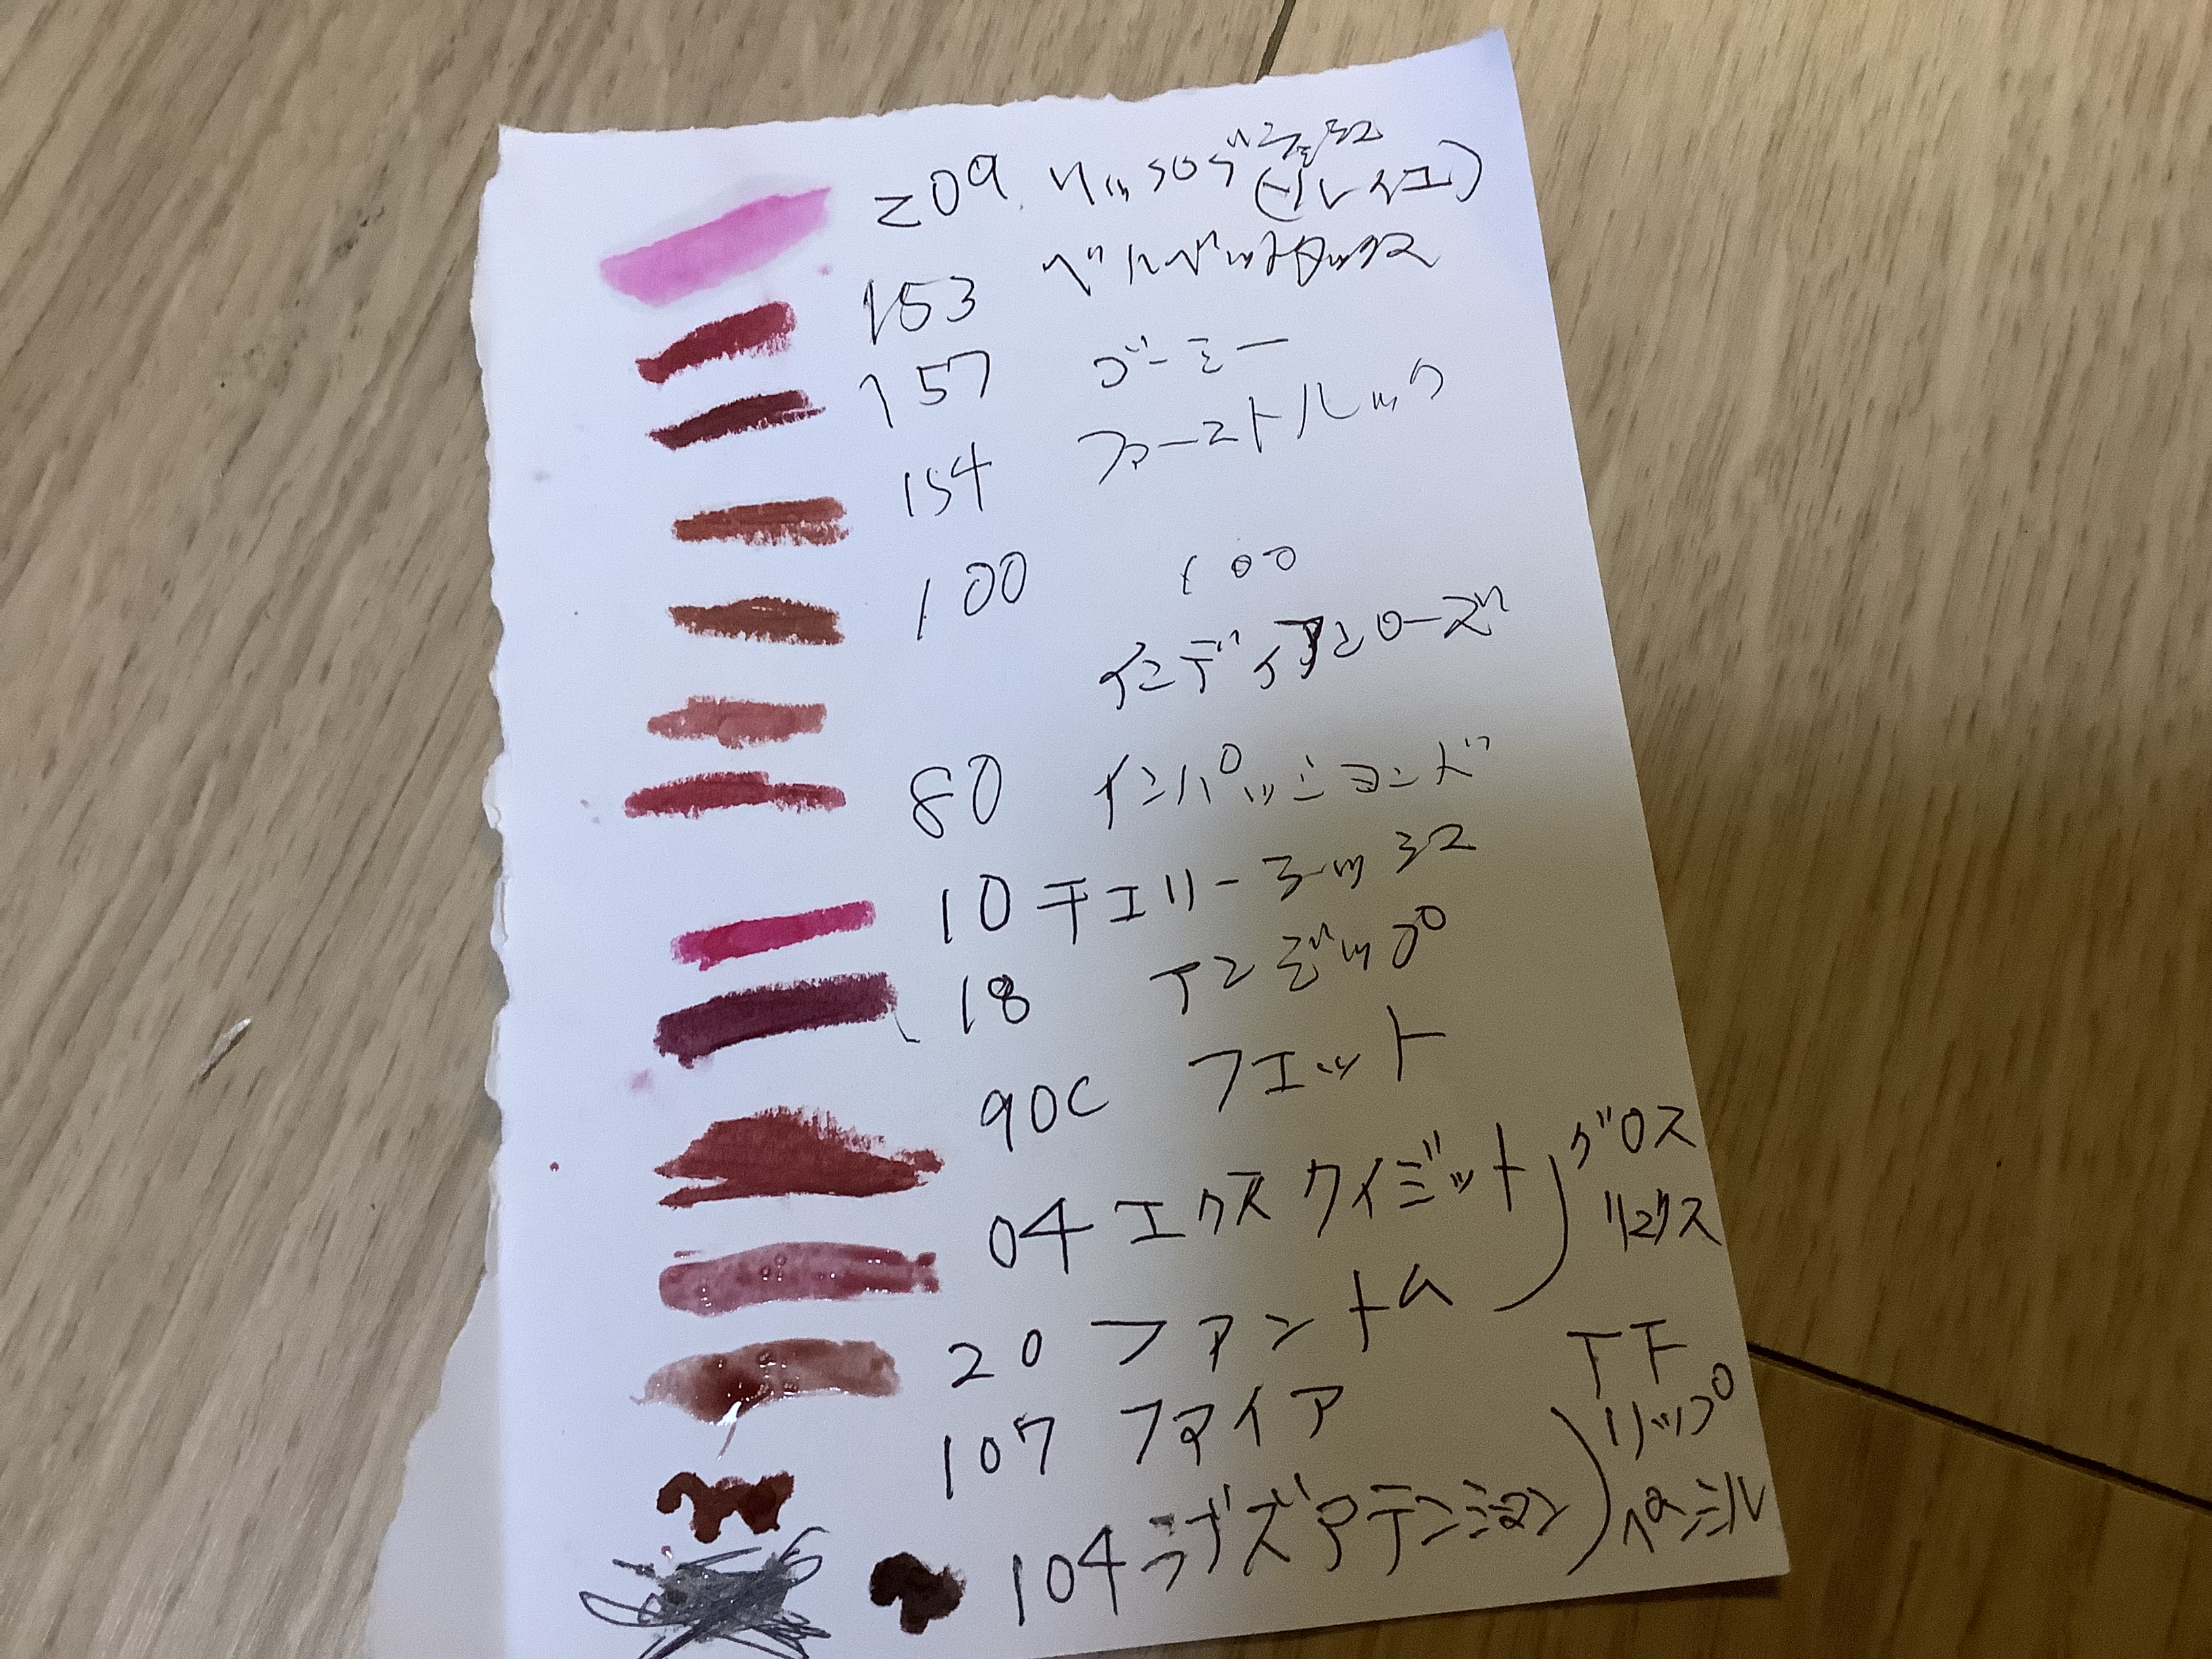 209
(ソレイユ)
153 ベルベットタックス
157 ゴーミー
154 ファーストルック
100 100
インディアンローズ
80 インパッションド
10 チェリー
18
90C フエット
04 エクスクイジット
グロス
リュクス
20 ファントム
107 ファイア
TF
リップ
ペンシル
104 ラブズアテンション